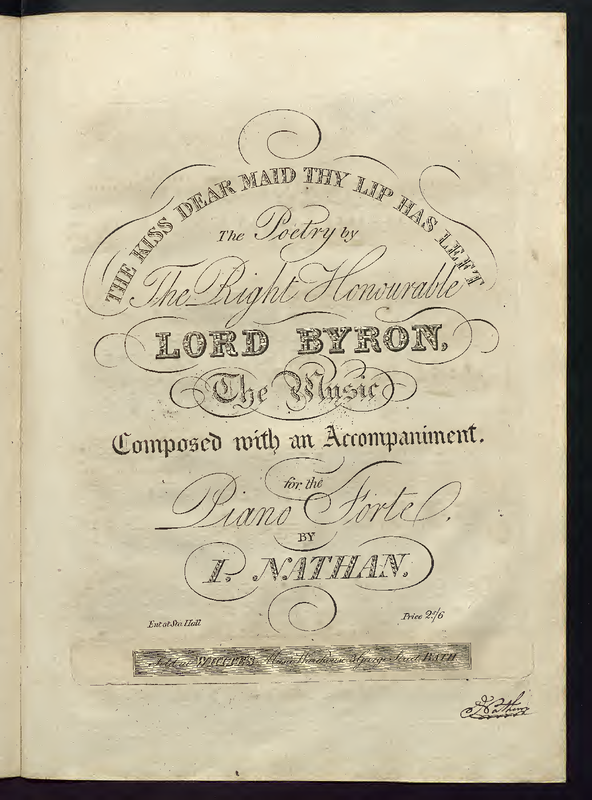 THE KISS DEAR MAID THY LIP HAS LEFT
The Poetry by
The Right Honourable
LORD BYRON,
The Music
Composed with an Accompaniment.
for the
Piano Forte.
BY
I. NATHAN.
Ent at Sta. Hall
Price 2s/6
Sold at WHITE'S Music Warehouse George Street BATH
I Nathan